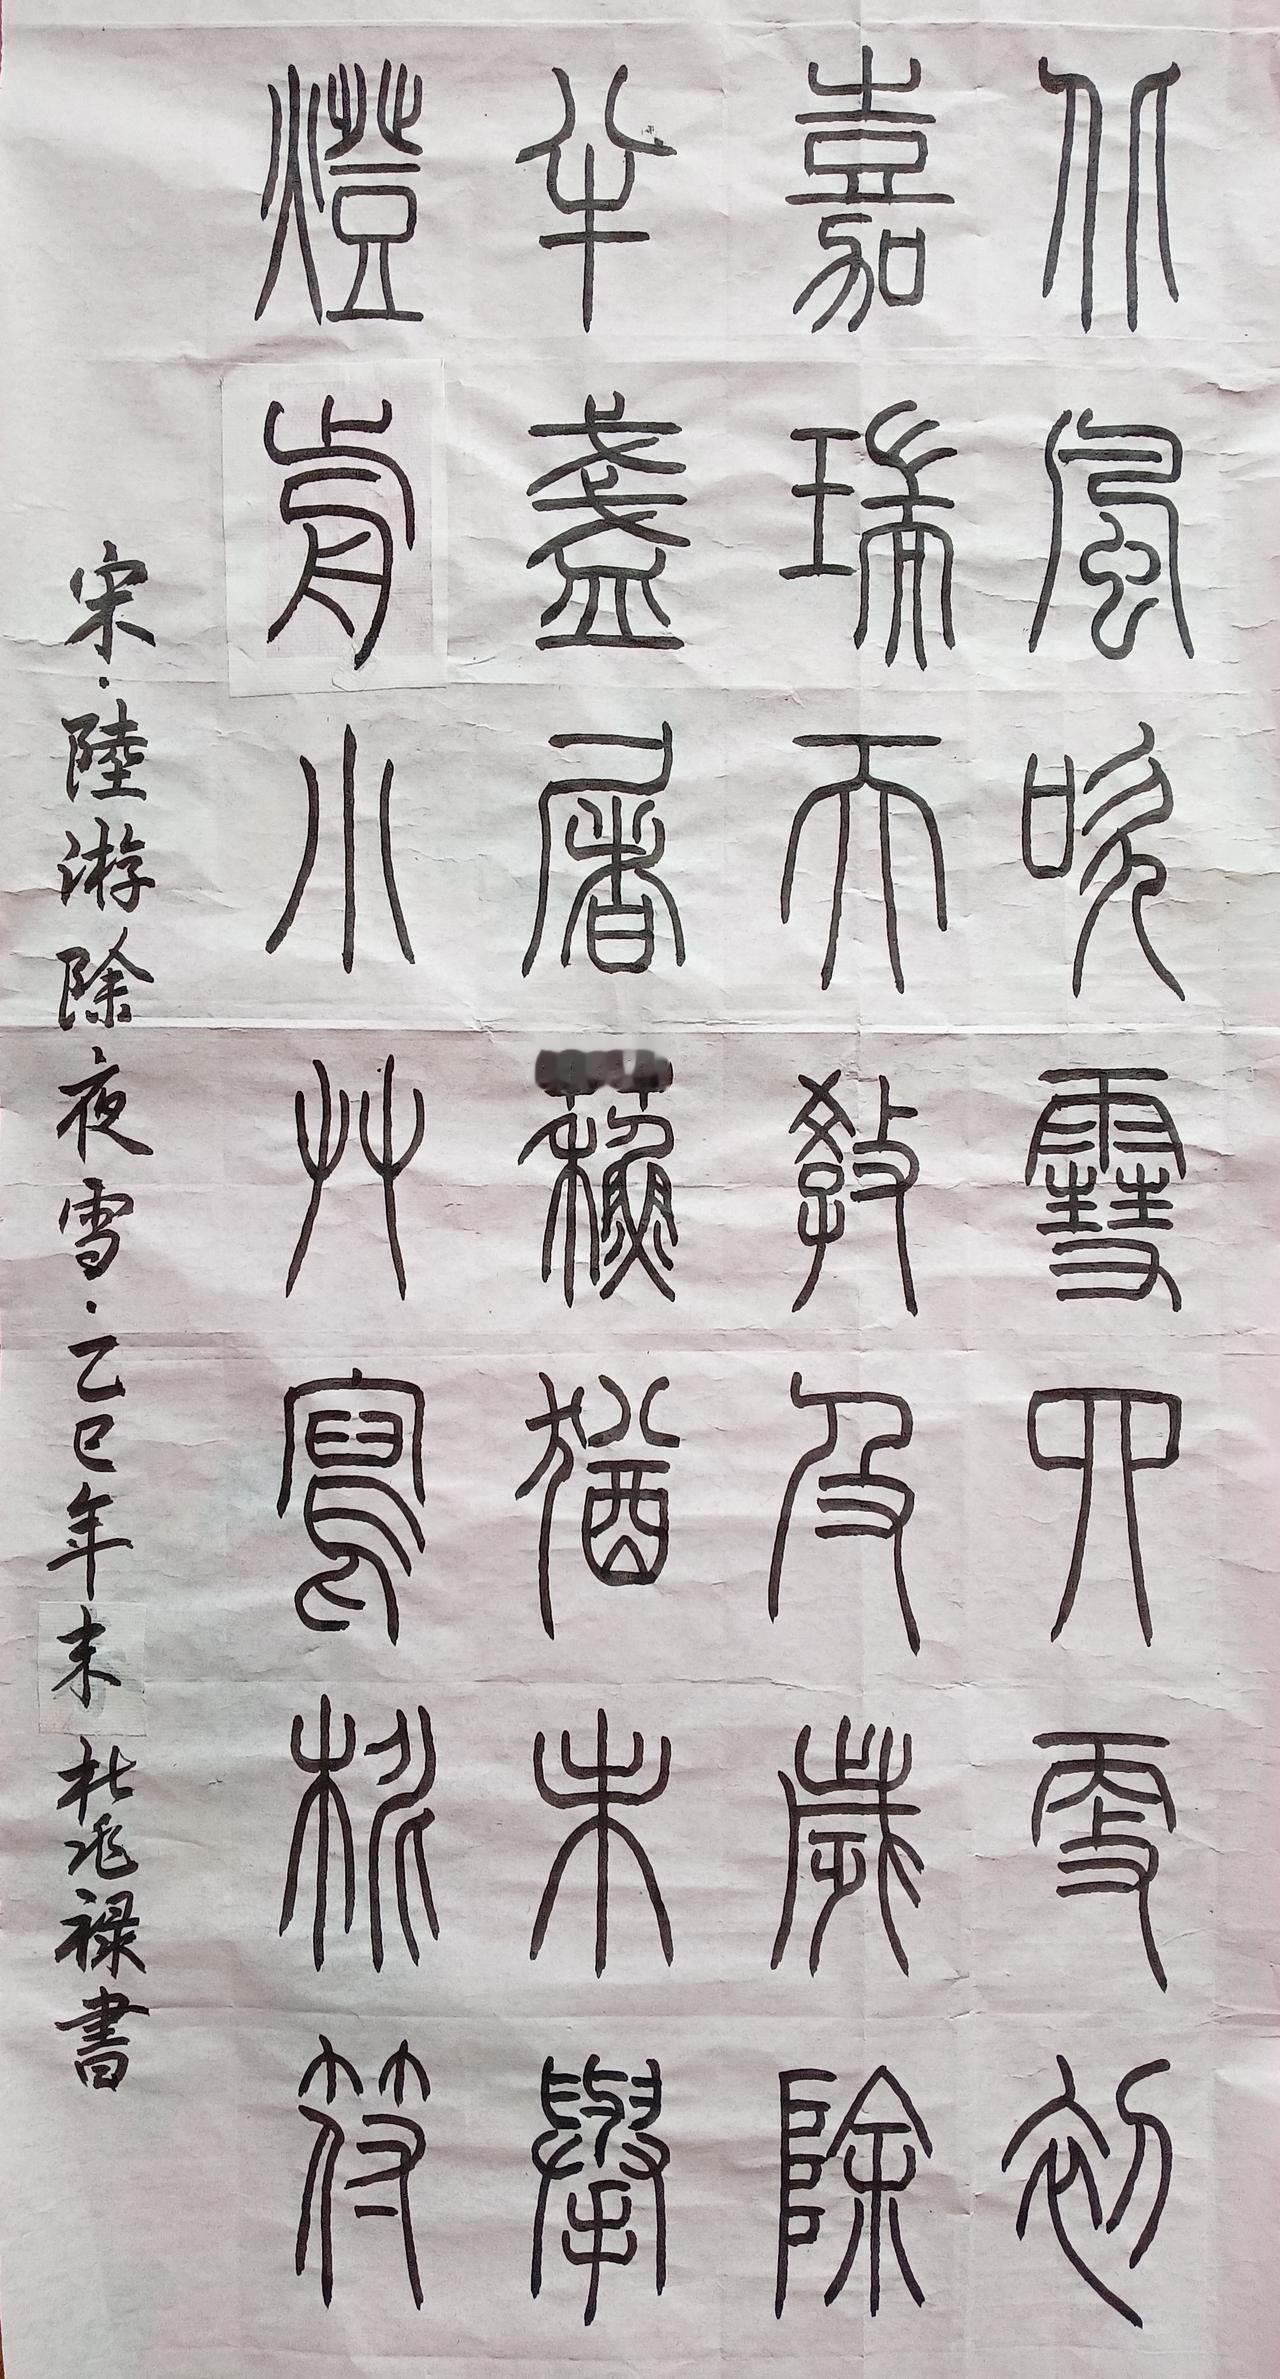 北風吹雪四更初
嘉瑞天教及歲除
半盞屠蘇猶未舉
燈前小艸寫桃符
宋·陸游除夜雪·乙巳年末杜兆禄書